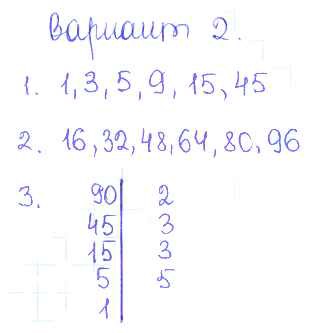 Вариант 2.
1. 1, 3, 5, 9, 15, 45
2. 16, 32, 48, 64, 80, 96
3. 90 | 2
45 | 3
15 | 3
5 | 5
1 |